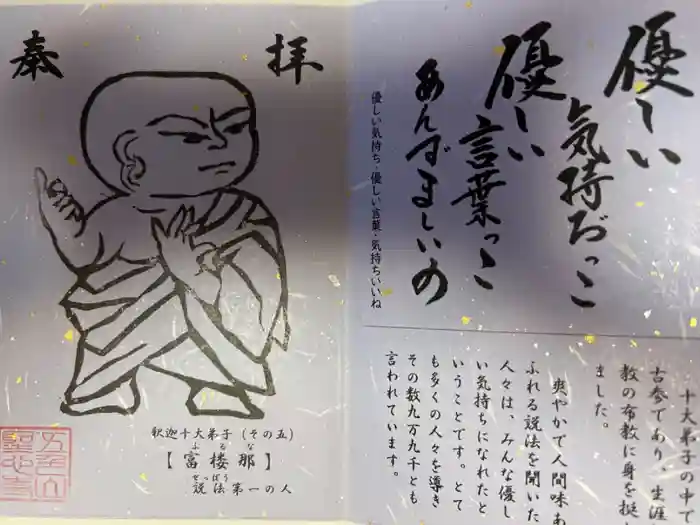 奉拝
釈迦十大弟子（その五）
【富楼那】
ふるな
説法第一の人
せっぽう
優しい
気持ぢっこ
優しい
言葉っこ
あんずましいの
優しい気持ち・優しい言葉・気持ちいいね
十大弟子の中で
古参であり、生涯
教の布教に身を挺
ました。
爽やかで人間味あ
ふれる説法を聞いた
人々は、みんな優し
い気持ちになれたと
いうことです。とて
も多くの人々を導き
その数九万九千とも
言われています。